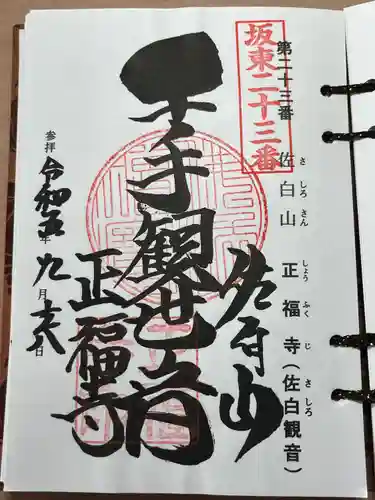 坂東二十三番
第二十三番 佐白山 正福寺(佐白観音)
さしろさん しょうふくじ さしろ
佐白山
千手観世音
正福寺
参拝 令和五年九月十八日